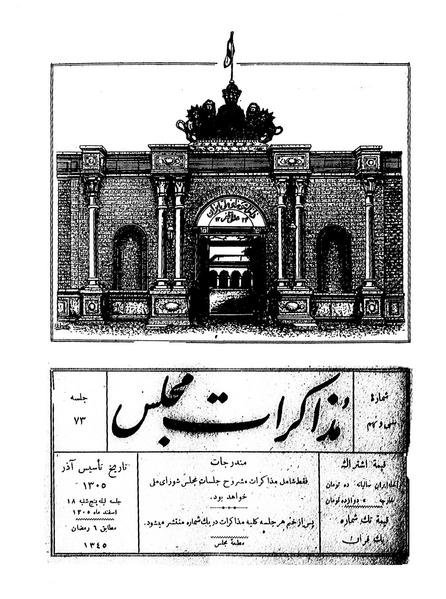 شمارهٔ
مذاکرات مجلس
جلسه
۷۳
قیمة اشتراك
ایران سالیانه ده تومان
خارجه » دوازده تومان
قیمة تك شماره
یك قران
مندرجات
فقط شامل مذاکرات مشروح جلسات مجلس شورای ملی
خواهد بود.
پس از ختم هر جلسه کلیه مذاکرات در یك شماره منتشر میشود.
مطبعهٔ مجلس
تاریخ تأسیس آذر
۱۳۰۵
جلسه لیله پنج شنبه ۱۸
اسفند ماه ۱۳۰۵
مطابق ٦ رمضان
۱۳٤۵